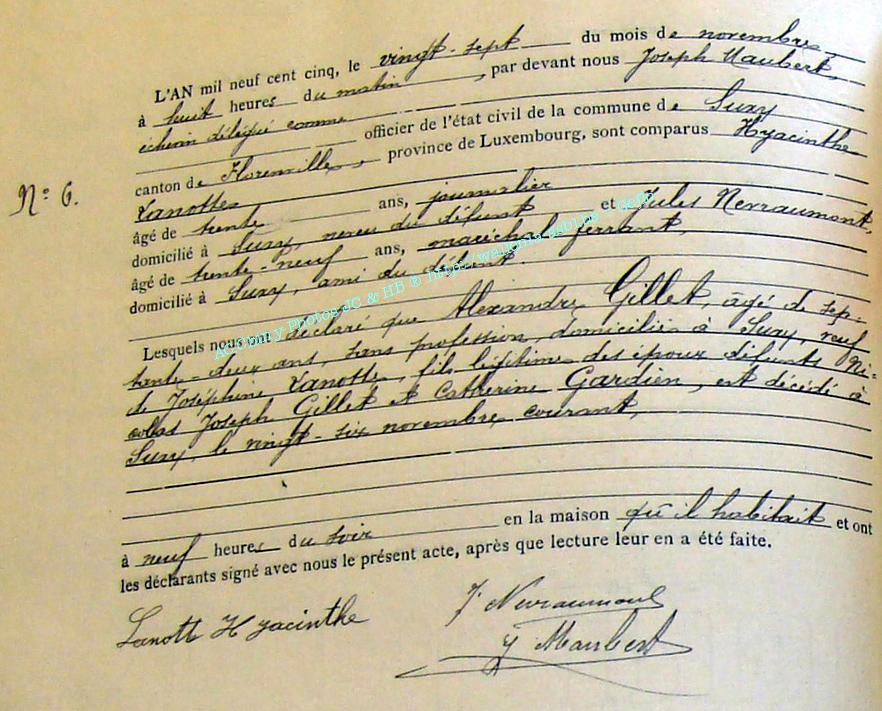 L'AN mil neuf cent cinq, le vingt-sept du mois de novembre
à huit heures du matin, par devant nous Joseph Maubert,
échevin délégué comme officier de l'état civil de la commune de Suxy
canton de Florenville, province de Luxembourg, sont comparus Hyacinthe
Lanotte
N° 6.
âgé de trente ans, journalier
domicilié à Suxy, neveu du défunt et Jules Nevraumont,
âgé de trente-neuf ans, maréchal ferrant,
domicilié à Suxy, ami du défunt.
Lesquels nous ont déclaré que Alexandre Gillet, âgé de sep-
tante-deux ans, sans profession, domicilié à Suxy, veuf
de Joséphine Lanotte, fils légitime des époux défunts Ni-
colas Joseph Gillet et Catherine Gardien, est décédé à
Suxy, le vingt-six novembre courant,
à neuf heures du soir en la maison qu'il habitait et ont
les déclarants signé avec nous le présent acte, après que lecture leur en a été faite.
Lanotte Hyacinthe
J. Nevraumont
J Maubert